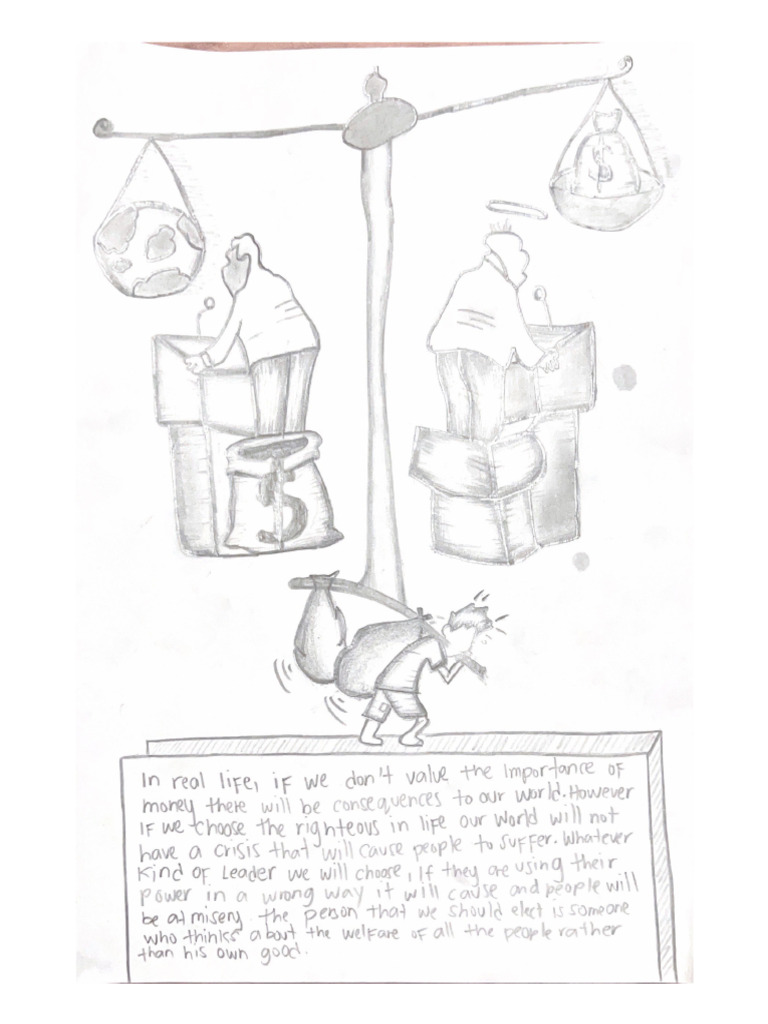 $
$
In real life, if we don't value the Importance of
money there will be consequences to our world. However
If we choose the righteous in life our world will not
have a crisis that will cause people to suffer. Whatever
kind of Leader we will choose, If they are using their
power in a wrong way it will cause and people will
be at misery. the person that we should elect is someone
who thinks about the welfare of all the people rather
than his own good.